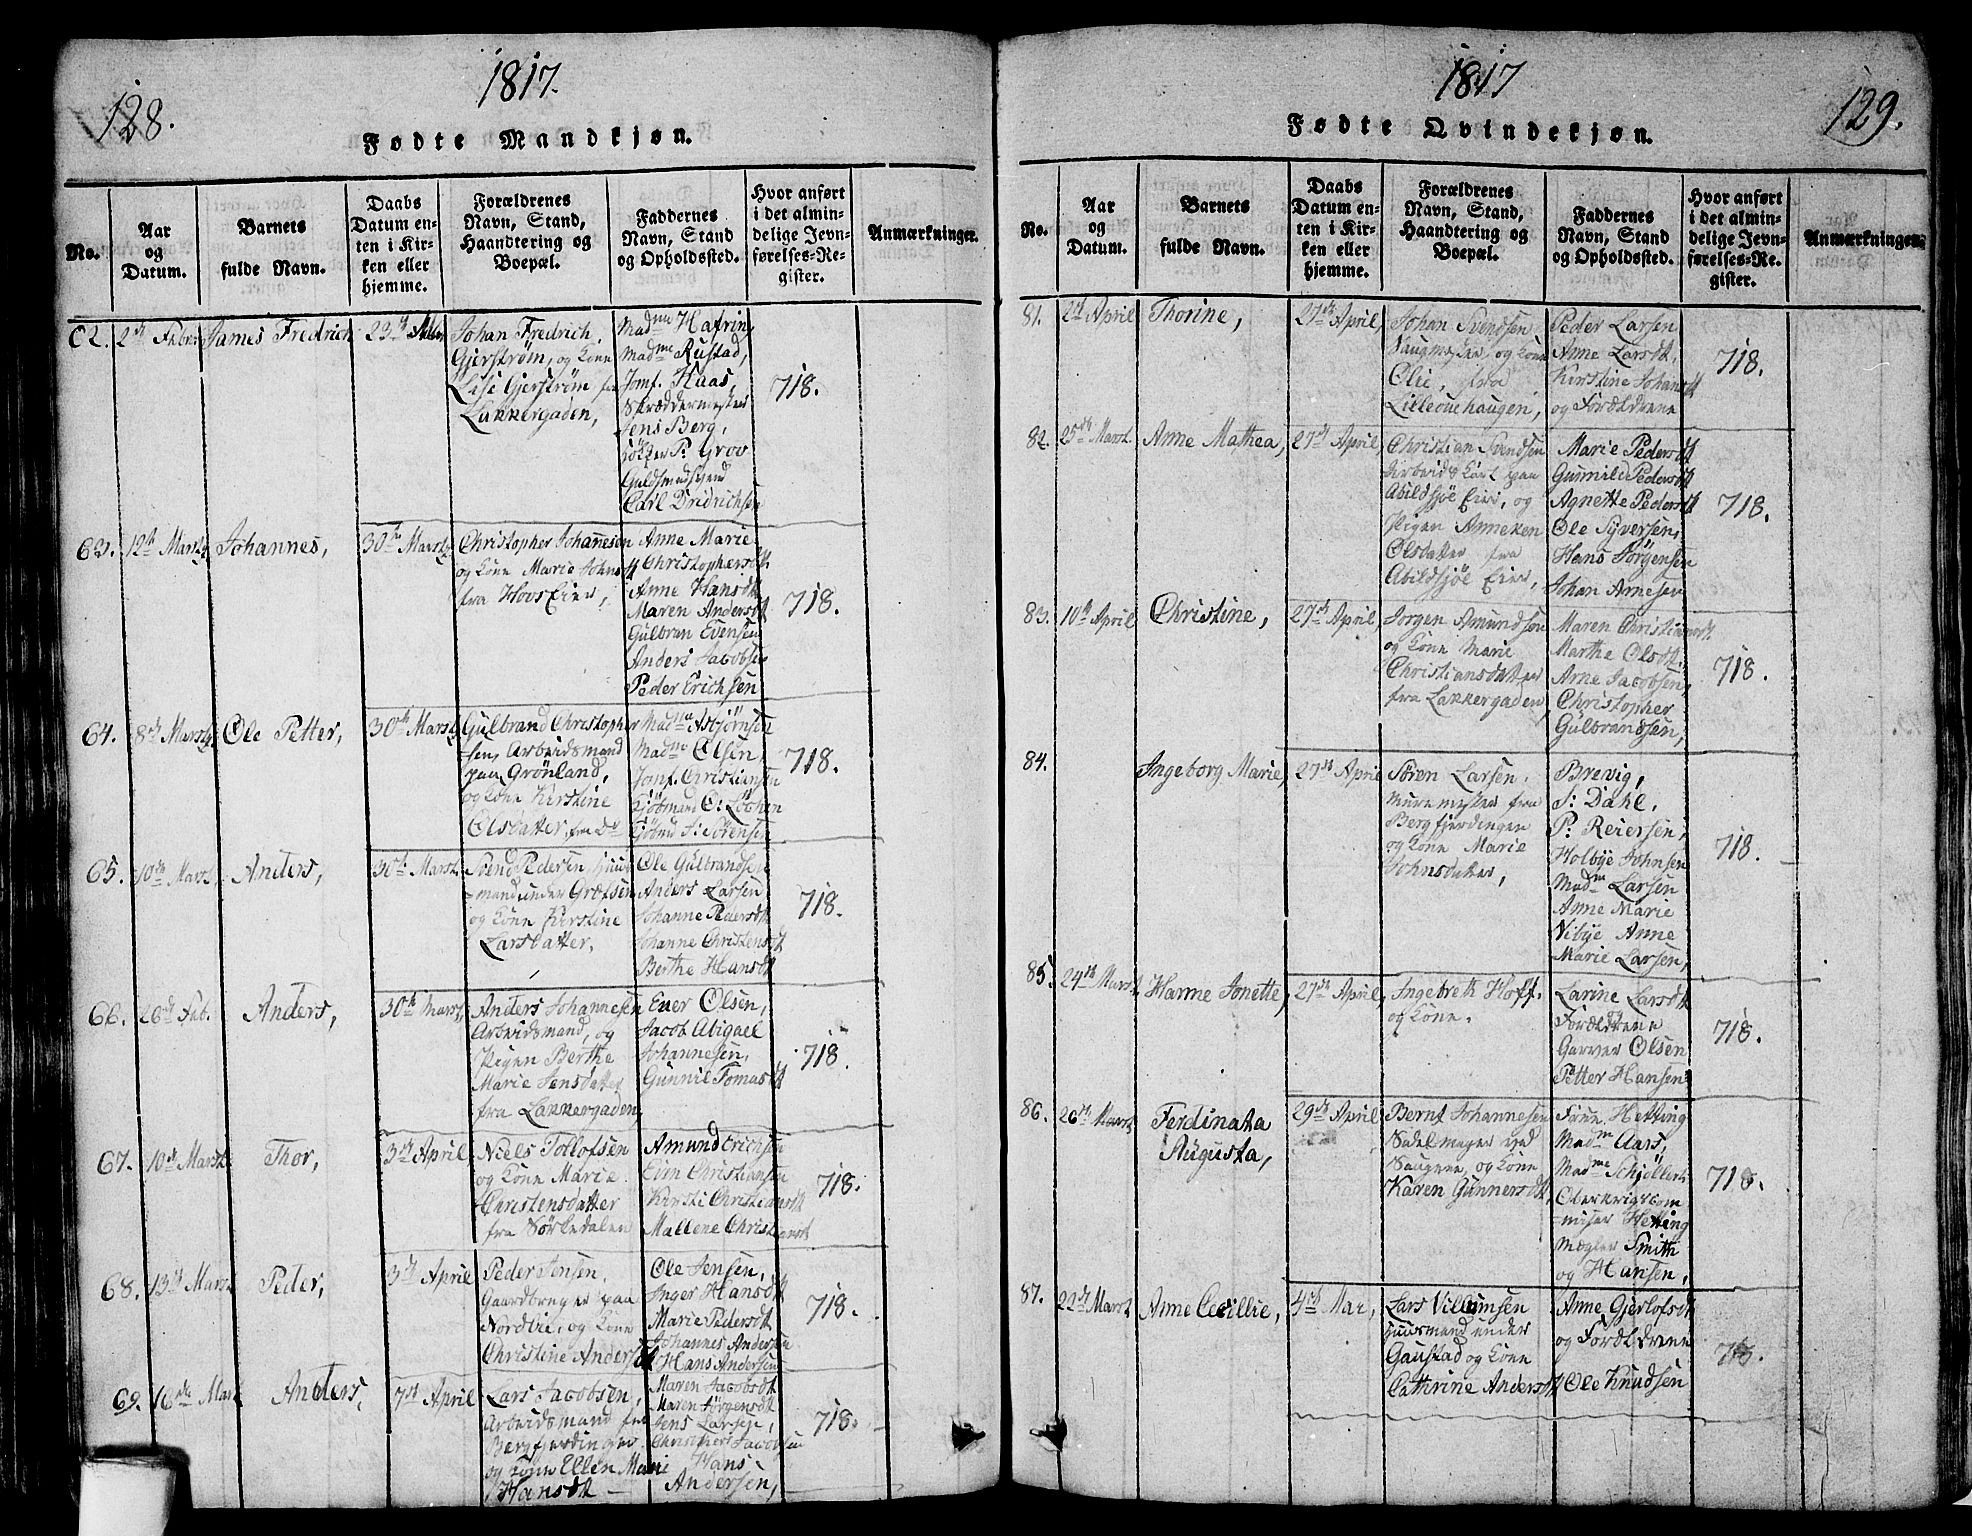 128.
1817.
Fødte Mandkjøn.
No.
Aar
og
Datum.
Barnets
fulde Navn.
Daabs
Datum en-
ten i Kir-
ken eller
hjemme.
Forældrenes
Navn, Stand,
Haandtering og
Boepæl.
Faddernes
Navn, Stand
og Opholdssted.
Hvor anført
i det almin-
delige Jevn-
førelses-Re-
gister.
Anmærkninger.
62.
James Fredrich
Johan Fredrich
Gjerström, og Kone
Lise Gjerström fra
Lakkergaden,
Madme Hafrin
Madme Rustad,
Jomf. Haas,
Skræddermester
Jens Berg,
P. Groo
Guldsmedsvend
Carl Didrichsen
718.
63. 12th Marst
Johannes,
30th Marst
Christopher Johannesen
og Kone Marie Johnsdt
fra Hovs Eier,
Anne Marie
Christophersdt
Anne Hansdt
Maren Andersdt
Gulbran Evensen
Anders Jacobsen
Peder Erichsen
718.
64. 8th Marst
Ole Petter,
30th Marst
Gulbrand Christopher
sen, Arbeidsmand
paa Grönland,
og Kone Kirstine
Olsdatter, fra Do
Madme Asbjørnsen
Madme Olsen,
Jomf. Christiansen
Kjöbmand O. Lochen
Kjöbmd S. Sörensen
718.
65. 10th Marst,
Anders,
30th Marst
Svend Pedersen Huus
=mand under Græfsen
og Kone Kirstine
Larsdatter,
Ole Gulbrandsen
Anders Larsen
Johanne Pedersdt
Johanne Christensdt
Berthe Hansdt
718.
66. 26th Feb.
Anders,
30th Marst,
Anders Johannesen
Arbeidsmand, og
Pigen Berthe
Marie Jensdatter
fra Lakkergaden,
Ever Olsen,
Jacob Abigael
Johannesen,
Gunnil Tomasdt
718.
67. 10th Marst
Thor,
3th April,
Niels Tollofsen
og Kone Marie
Christensdatter
fra Sörkedalen
Amund Erichsen
Even Christiansen
Kirsti Christiansdt
Mallene Christiansdt
718.
68. 13th Marst
Peder,
3th April
Peder Jensen,
Gaardbruger paa
Nordbie, og Kone
Christine Andersdt
Ole Jensen,
Inger Hansdt
Marie Pedersdt
Johannes Andersen
Hans Andersen
718.
69. 16de Mar
Anders,
7th April
Lars Jacobsen,
Arbeidsmand fra
Bergfjerdingen
og Kone Ellen Marie
Hansdt
Maren Jacobsdt
Maren Jørgensdt
Jens Larsen,
Christpher Jacobsen
Hans
Andersen,
718.
1817
129.
Fødte Qvindekjøn.
No.
Aar
og
Datum.
Barnets
fulde Navn.
Daabs
Datum en-
ten i Kir-
ken eller
hjemme.
Forældrenes
Navn, Stand,
Haandtering og
Boepæl.
Faddernes
Navn, Stand
og Opholdssted.
Hvor anført
i det almin-
delige Jevn-
førelses-Re-
gister.
Anmærkninger.
81. 2th April
Thorine,
27th April,
Johan Svendsen
Saugmester, og Kone
Olie, fra
Lilleouehaugen,
Peder Larsen
Anne Larsdt.
Kirstine Johansdt
og Forældrene
718.
82. 25th Marst.
Anne Mathea,
27th April,
Christian Svendsen
Arbeids Karl paa
Abildsjöe Eier, og
Pigen Anneken
Olsdatter fra
Abildsjöe Eier,
Marie Pedersdt
Gunnild Pedersdt
Agnette Pedersdt
Ole Syversen,
Hans Jörgensen
Johan Arnesen
718.
83. 10th April
Christine,
27th April,
Jorgen Amundsen
og Kone Marie
Christiansdatter
fra Lakkergaden,
Maren Christiansdt.
Marthe Olsdt.
Arne Jacobsen,
Christopher
Gulbrandsen,
718.
84.
Ingeborg Marie,
27th April
Sören Larsen,
Muremester fra
Bergfjerdingen
og Kone Marie
Johnsdatter,
Brevig,
S. Dahl,
P. Reiersen,
Holbye Johnsen
Madm Larsen
Anne Marie
Vibye Anne
Marie Larsen,
718.
85. 24th Marst,
Hanne Jonette,
27th April,
Ingebreth Hoff.
og Kone.
Larine Larsdt
Forældrene
Garver Olsen
Petter Hansen
718.
86. 26th Marst
Ferdinata
Augusta,
29th April
Bernt Johannesen
Sadelmager ved
Saugene, og Kone
Karen Gunnersdt,
Hetting
Madm Aars,
Madme Schjöllert
Oberkrigscom
=miser Hetting
Mægler Smith
og Hansen,
718.
87. 22th Marst
Anne Cecillie,
4th Mai,
Lars Villumsen
Huusmand under
Gaustad og Kone
Cathrine Andersdt
Anne Gjerlofsdt
og Forældrene
Ole Knudsen
718.